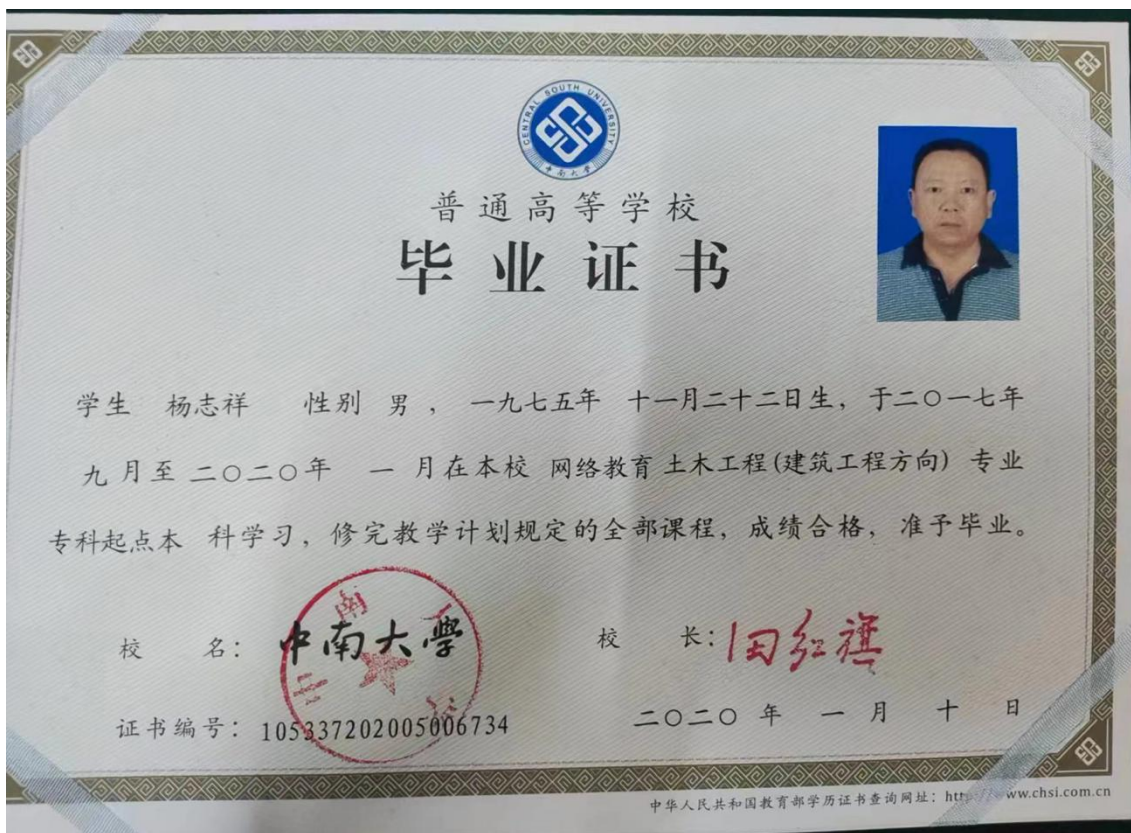 CENTRAL SOUTH UNIVERSITY
中南大学
普通高等学校
毕业证书
学生 杨志祥 性别 男 , 一九七五年 十一月二十二日生, 于二〇一七年
九月至 二〇二〇年 一 月在本校 网络教育 土木工程(建筑工程方向) 专业
专科起点本 科学习, 修完教学计划规定的全部课程, 成绩合格, 准予毕业。
校 名: 中南大學 校 长: 田红旗
证书编号: 105337202005006734 二〇二〇 年 一 月 十 日
中华人民共和国教育部学历证书查询网址: http://www.chsi.com.cn